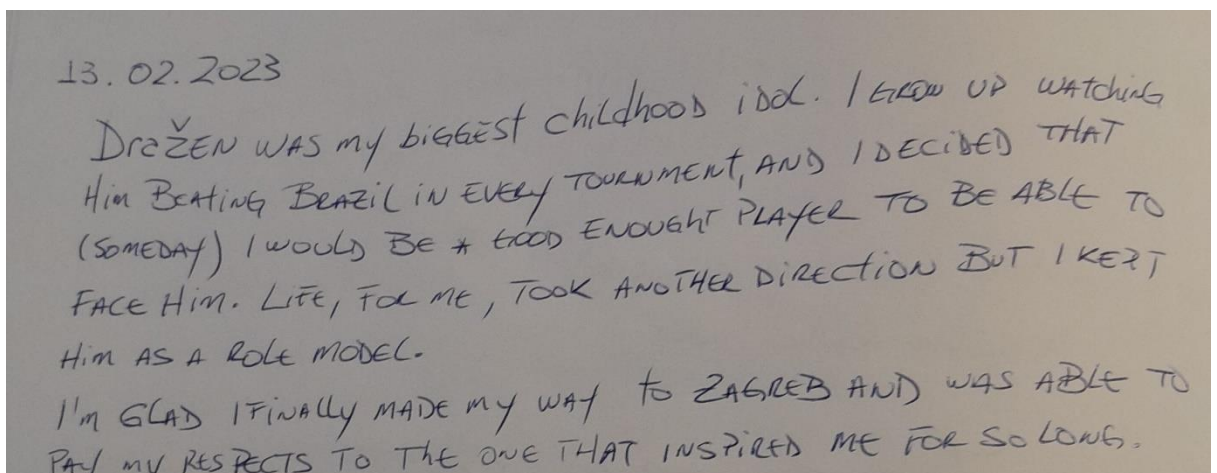 13.02.2023
DražEN WAS my biGGEST childhood idol. I GROW UP WATchiNG
Him BEATING BRAZIL IN EVERY TOURNMENT, AND I DECIDED THAT
(SOMEDAY) I WOULD BE A GOOD ENOUGHT PLAYER TO BE ABLE TO
FACE Him. LIFE, FOR ME, TOOK ANOTHER DIRECTION BUT I KEPT
Him AS A ROLE MODEL.
I'm GLAD I FINALLY MADE MY WAY to ZAGREB AND WAS ABLE TO
PAY MY RESPECTS TO The ONE THAT INSPIRED ME FOR SO LONG.